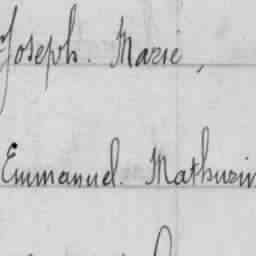 Joseph. Marie,
Emmanuel. Mathurin